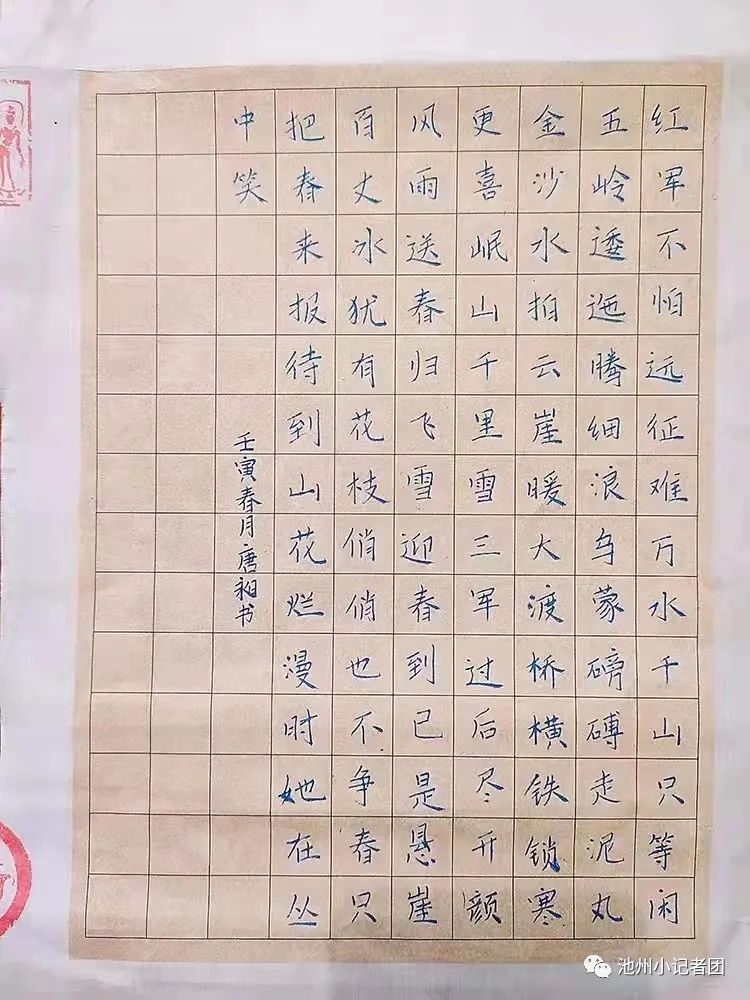 红军不怕远征难万水千山只等闲
五岭逶迤腾细浪乌蒙磅礴走泥丸
金沙水拍云崖暖大渡桥横铁锁寒
更喜岷山千里雪三军过后尽开颜
风雨送春归飞雪迎春到已是悬崖
百丈冰犹有花枝俏俏也不争春只
把春来报待到山花烂漫时她在丛
中笑
壬寅春月唐昶书
池州小记者团